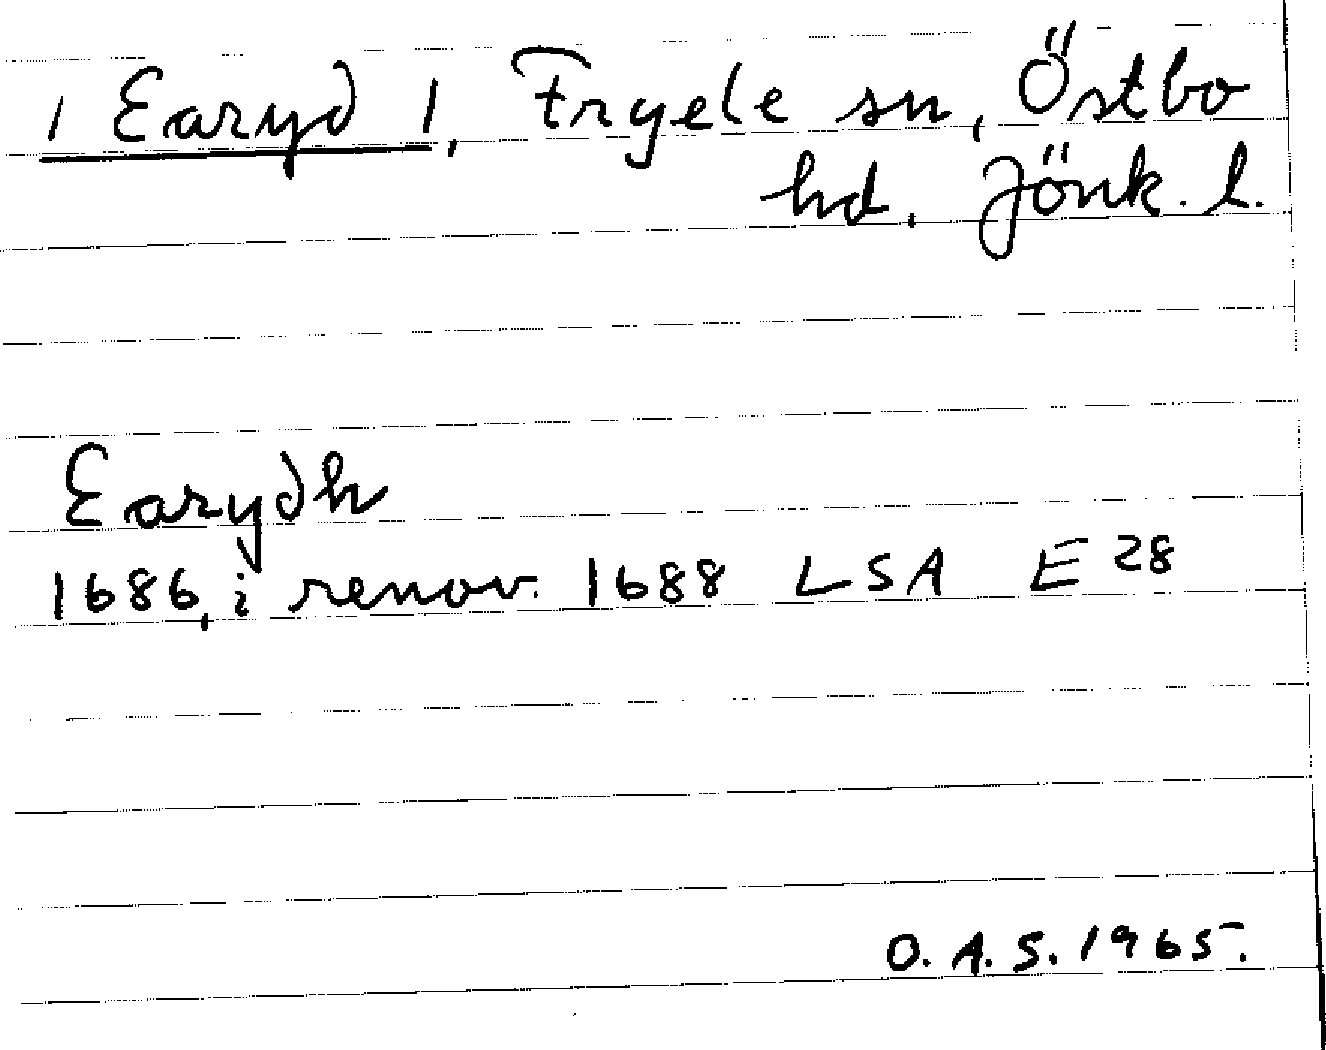 1 Earyd 1, Fryele sn, Östbo
hd, Jönk. l.
Earydh
1686, i renov. 1688 LSA E 28
O. A. S. 1965.